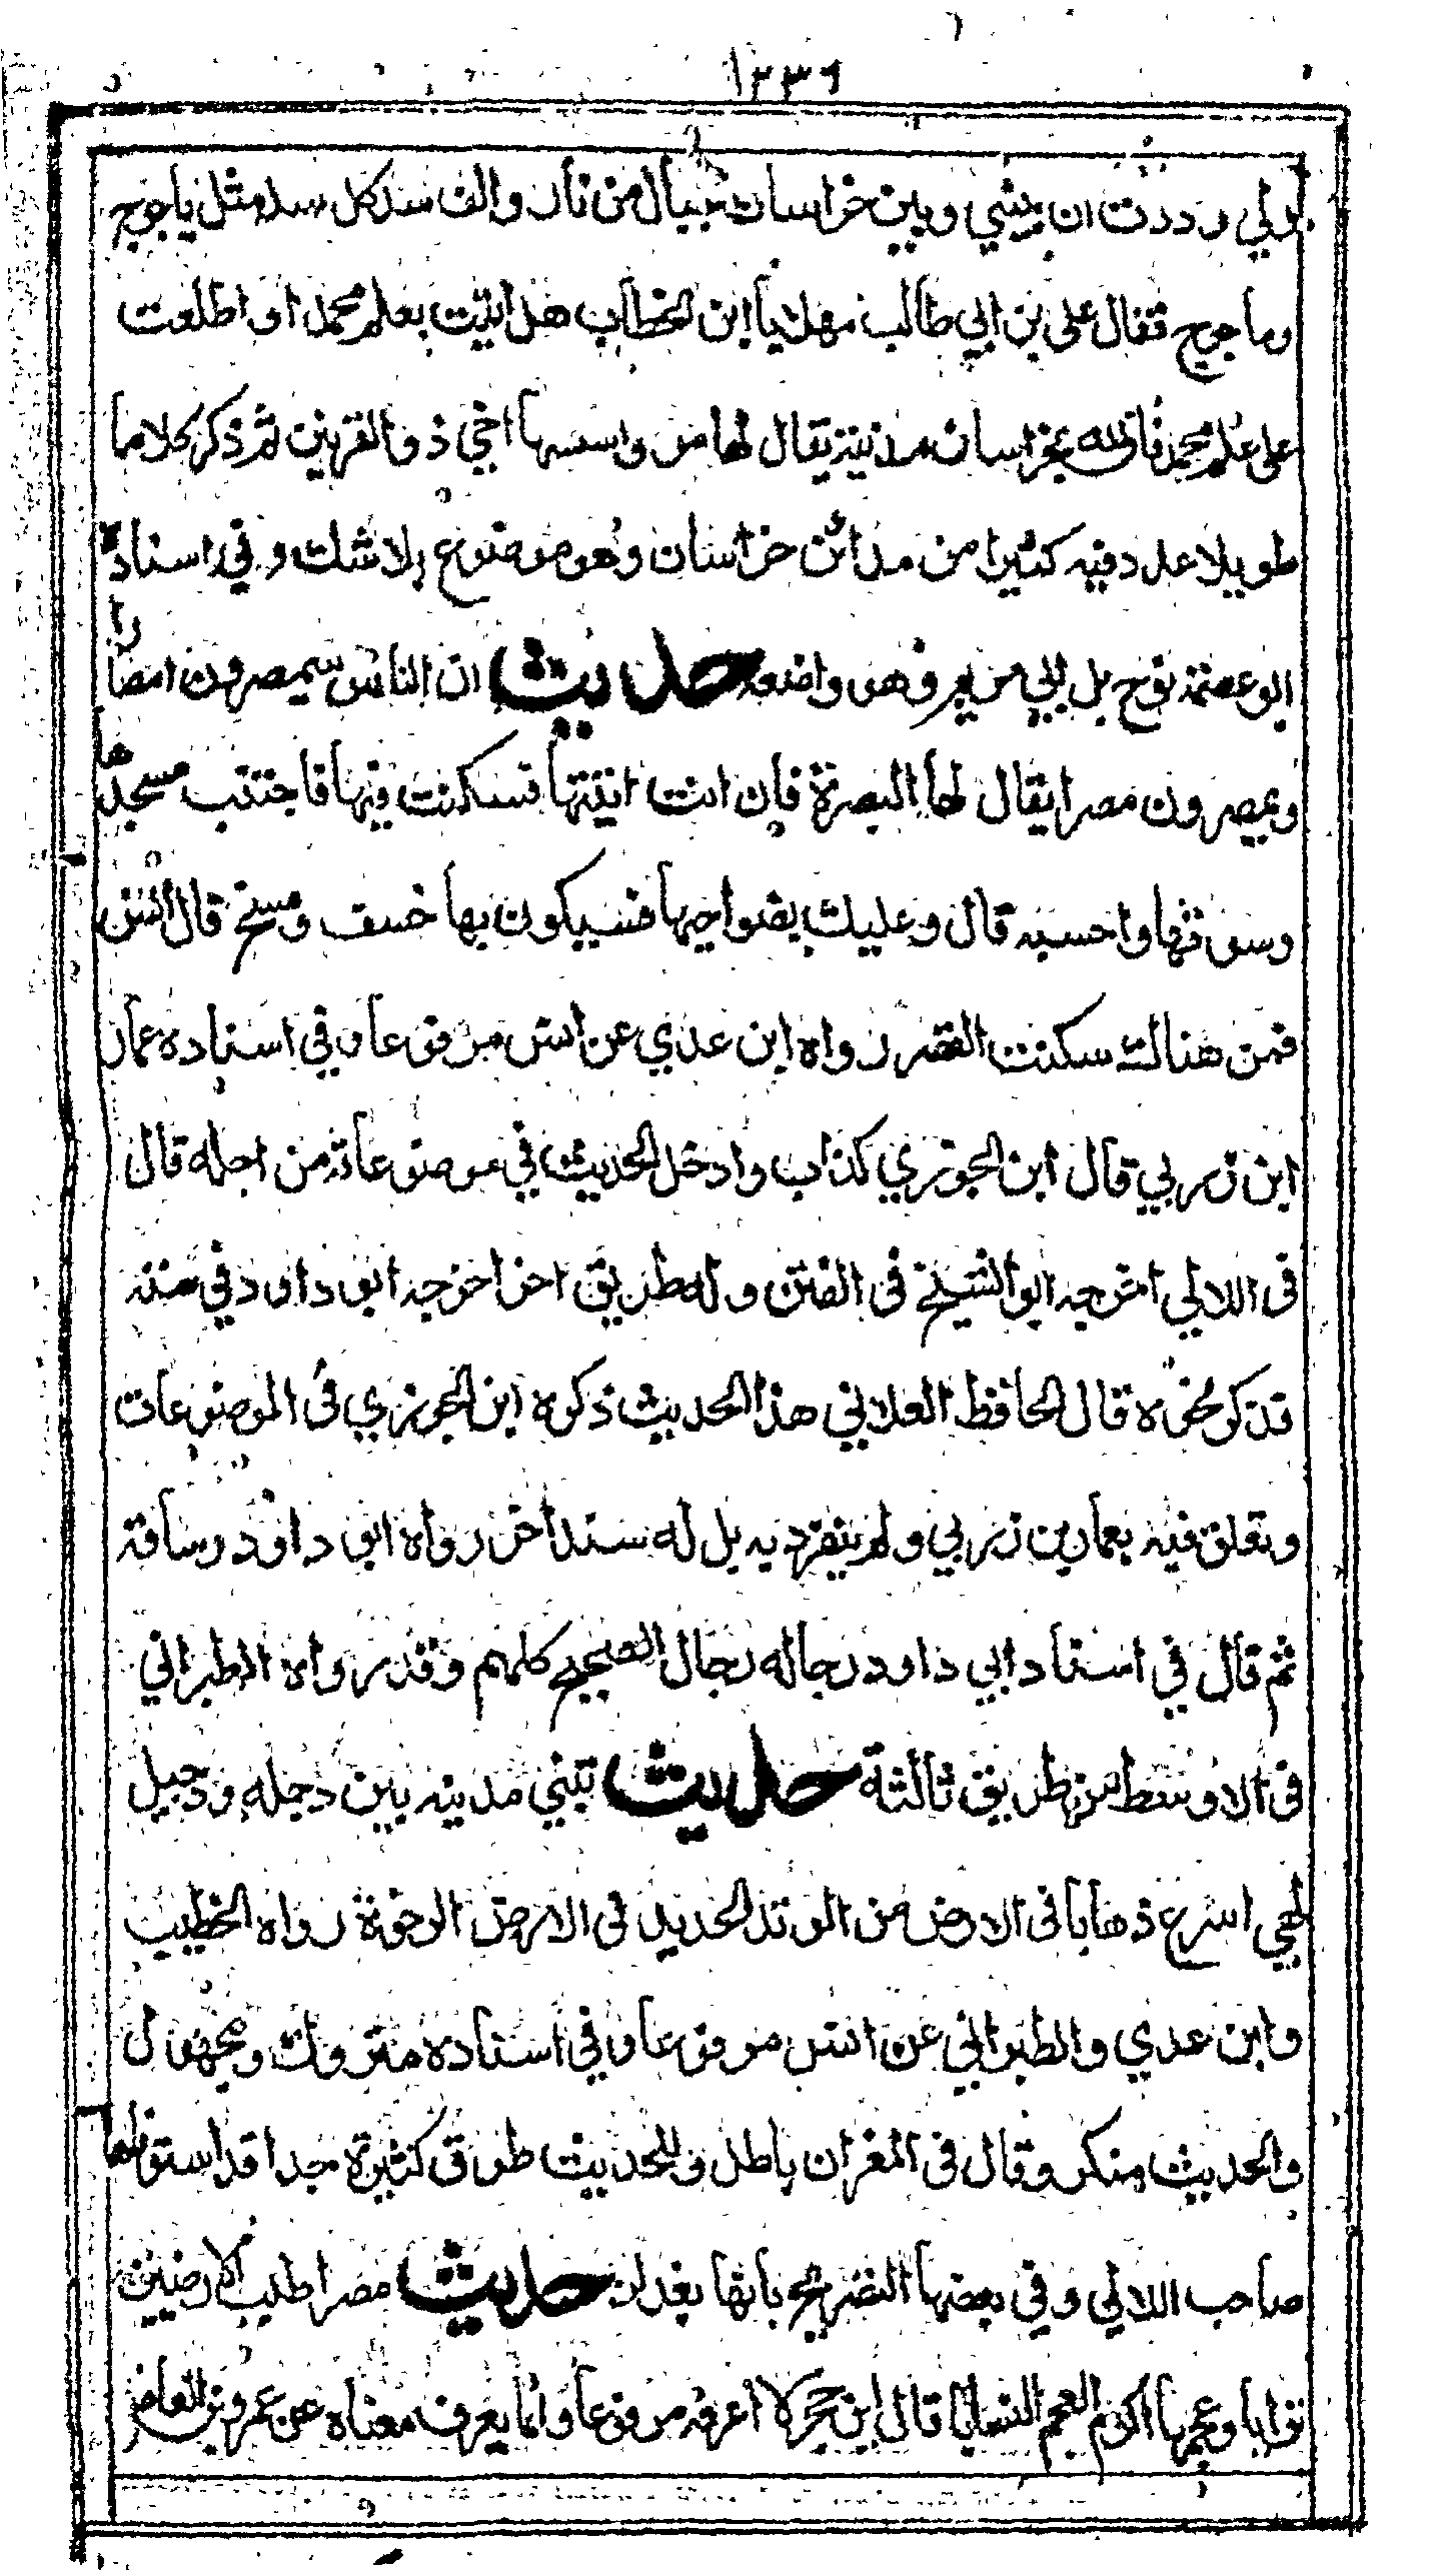 ١٣٣٦
لولي وددت ان بيني وبين خراسان جبال من نار والف سد كل سد مثل ياجوج
وماجوج فقال علي بن ابي طالب مهلا يا ابن الخطاب هل اتيت بعلم محمد او اطلعت
على علم محمد فان لله بخراسان مدينة يقال لها مرو اسسها اخي ذو القرنين ثم ذكر كلاما
طويلا عدد فيه كثيرا من مدائن خراسان وهو موضوع بلا شك وفي اسناده
ابو عصمة نوح بل من يعرف هو واضعه حديث ان الناس سيمصرون امصارا
ويمصرون مصرا يقال لها البصرة فان انت اتيتها فسكنت فيها فاجتنب مسجدها
وسوقها واحسبه قال وعليك بضواحيها فسيكون بها خسف ومسخ قال انس
فمن هناك سكنت القصر رواه ابن عدي عن انس مرفوعا وفي اسناده عمار
ابن زربي قال ابن الجوزي كذاب وادخل الحديث في موضوعاته من اجله قال
في اللالي اخرجه ابو الشيخ في الفتن وله طريق اخر اخرجه ابو داود في سننه
فذكر نحوه قال الحافظ العلائي هذا الحديث ذكره ابن الجوزي في الموضوعات
وتعلق فيه بعمار بن زربي ولم ينفرد به بل له سند اخر رواه ابو داود وساقه
ثم قال في اسناد ابي داود رجاله رجال الصحيح كلهم وقد رواه الطبراني
في الاوسط من طريق ثالثة حديث تبنى مدينه بين دجله ودجيل
لهي اسرع ذهابا في الارض من الوتد الحديد في الارض الرخوة رواه الخطيب
وابن عدي والطبراني عن انس مرفوعا وفي اسناده متروك ومجهول
والحديث منكر وقال في الميزان باطل وللحديث طرق كثيرة جدا قد استوفاها
صاحب اللالي وفي بعضها التصريح بانها بغداد حديث مصر اطيب الارضين
ترابا وعجمها اكرم العجم انسابا قال ابن حجر لا اعرفه مرفوعا وانما يعرف معناه عن عمرو بن العاص